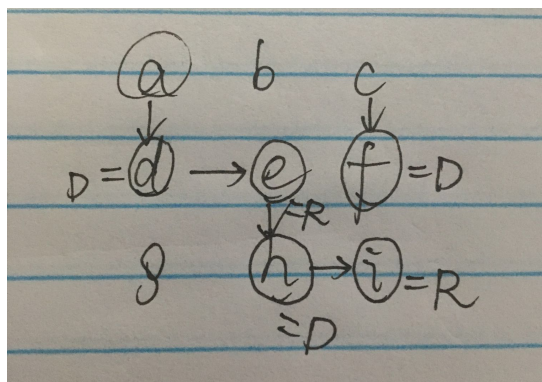 a b c
D = d → e f = D
= R
g h → i = R
= D